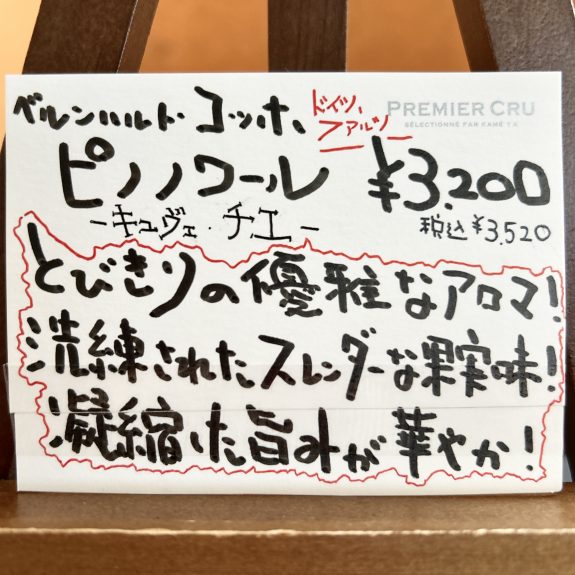 ベルンハルト・コッホ、
ドイツ、
ファルツ
PREMIER CRU
SÉLECTIONNÉ PAR KAMÉYA
ピノノワール ¥3.200
-キュヴェ・チエ-
税込¥3,520
とびきりの優雅なアロマ!
洗練されたスレンダーな果実味!
凝縮した旨みが華やか!